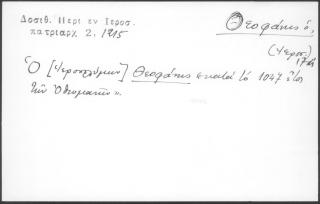 Δοσιθ. Περι εν Ιεροσ.
πατριαρχ 2. 1215
Θεοφάνης ὁ,
(Ἱεροσ.)
17αι
Ὁ [Ἱεροσολύμων] Θεοφάνης κατὰ τὸ 1047 ἔτος
τῶν Ὀθωμανῶν».